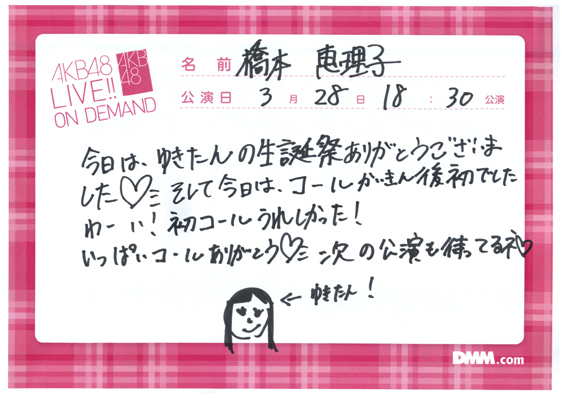 AKB48
LIVE!!
ON DEMAND
AKB
48
名前 橋本 恵理子
公演日 3月28日 18:30公演
今日は、ゆきたんの生誕祭ありがとうございま
した♡ミ そして今日は、コールがいきん後初でした
わーい!初コールうれしかった!
いっぱいコールありがとう♡ミ 次の公演も待ってるネ♡
← ゆきたん!
DMM.com